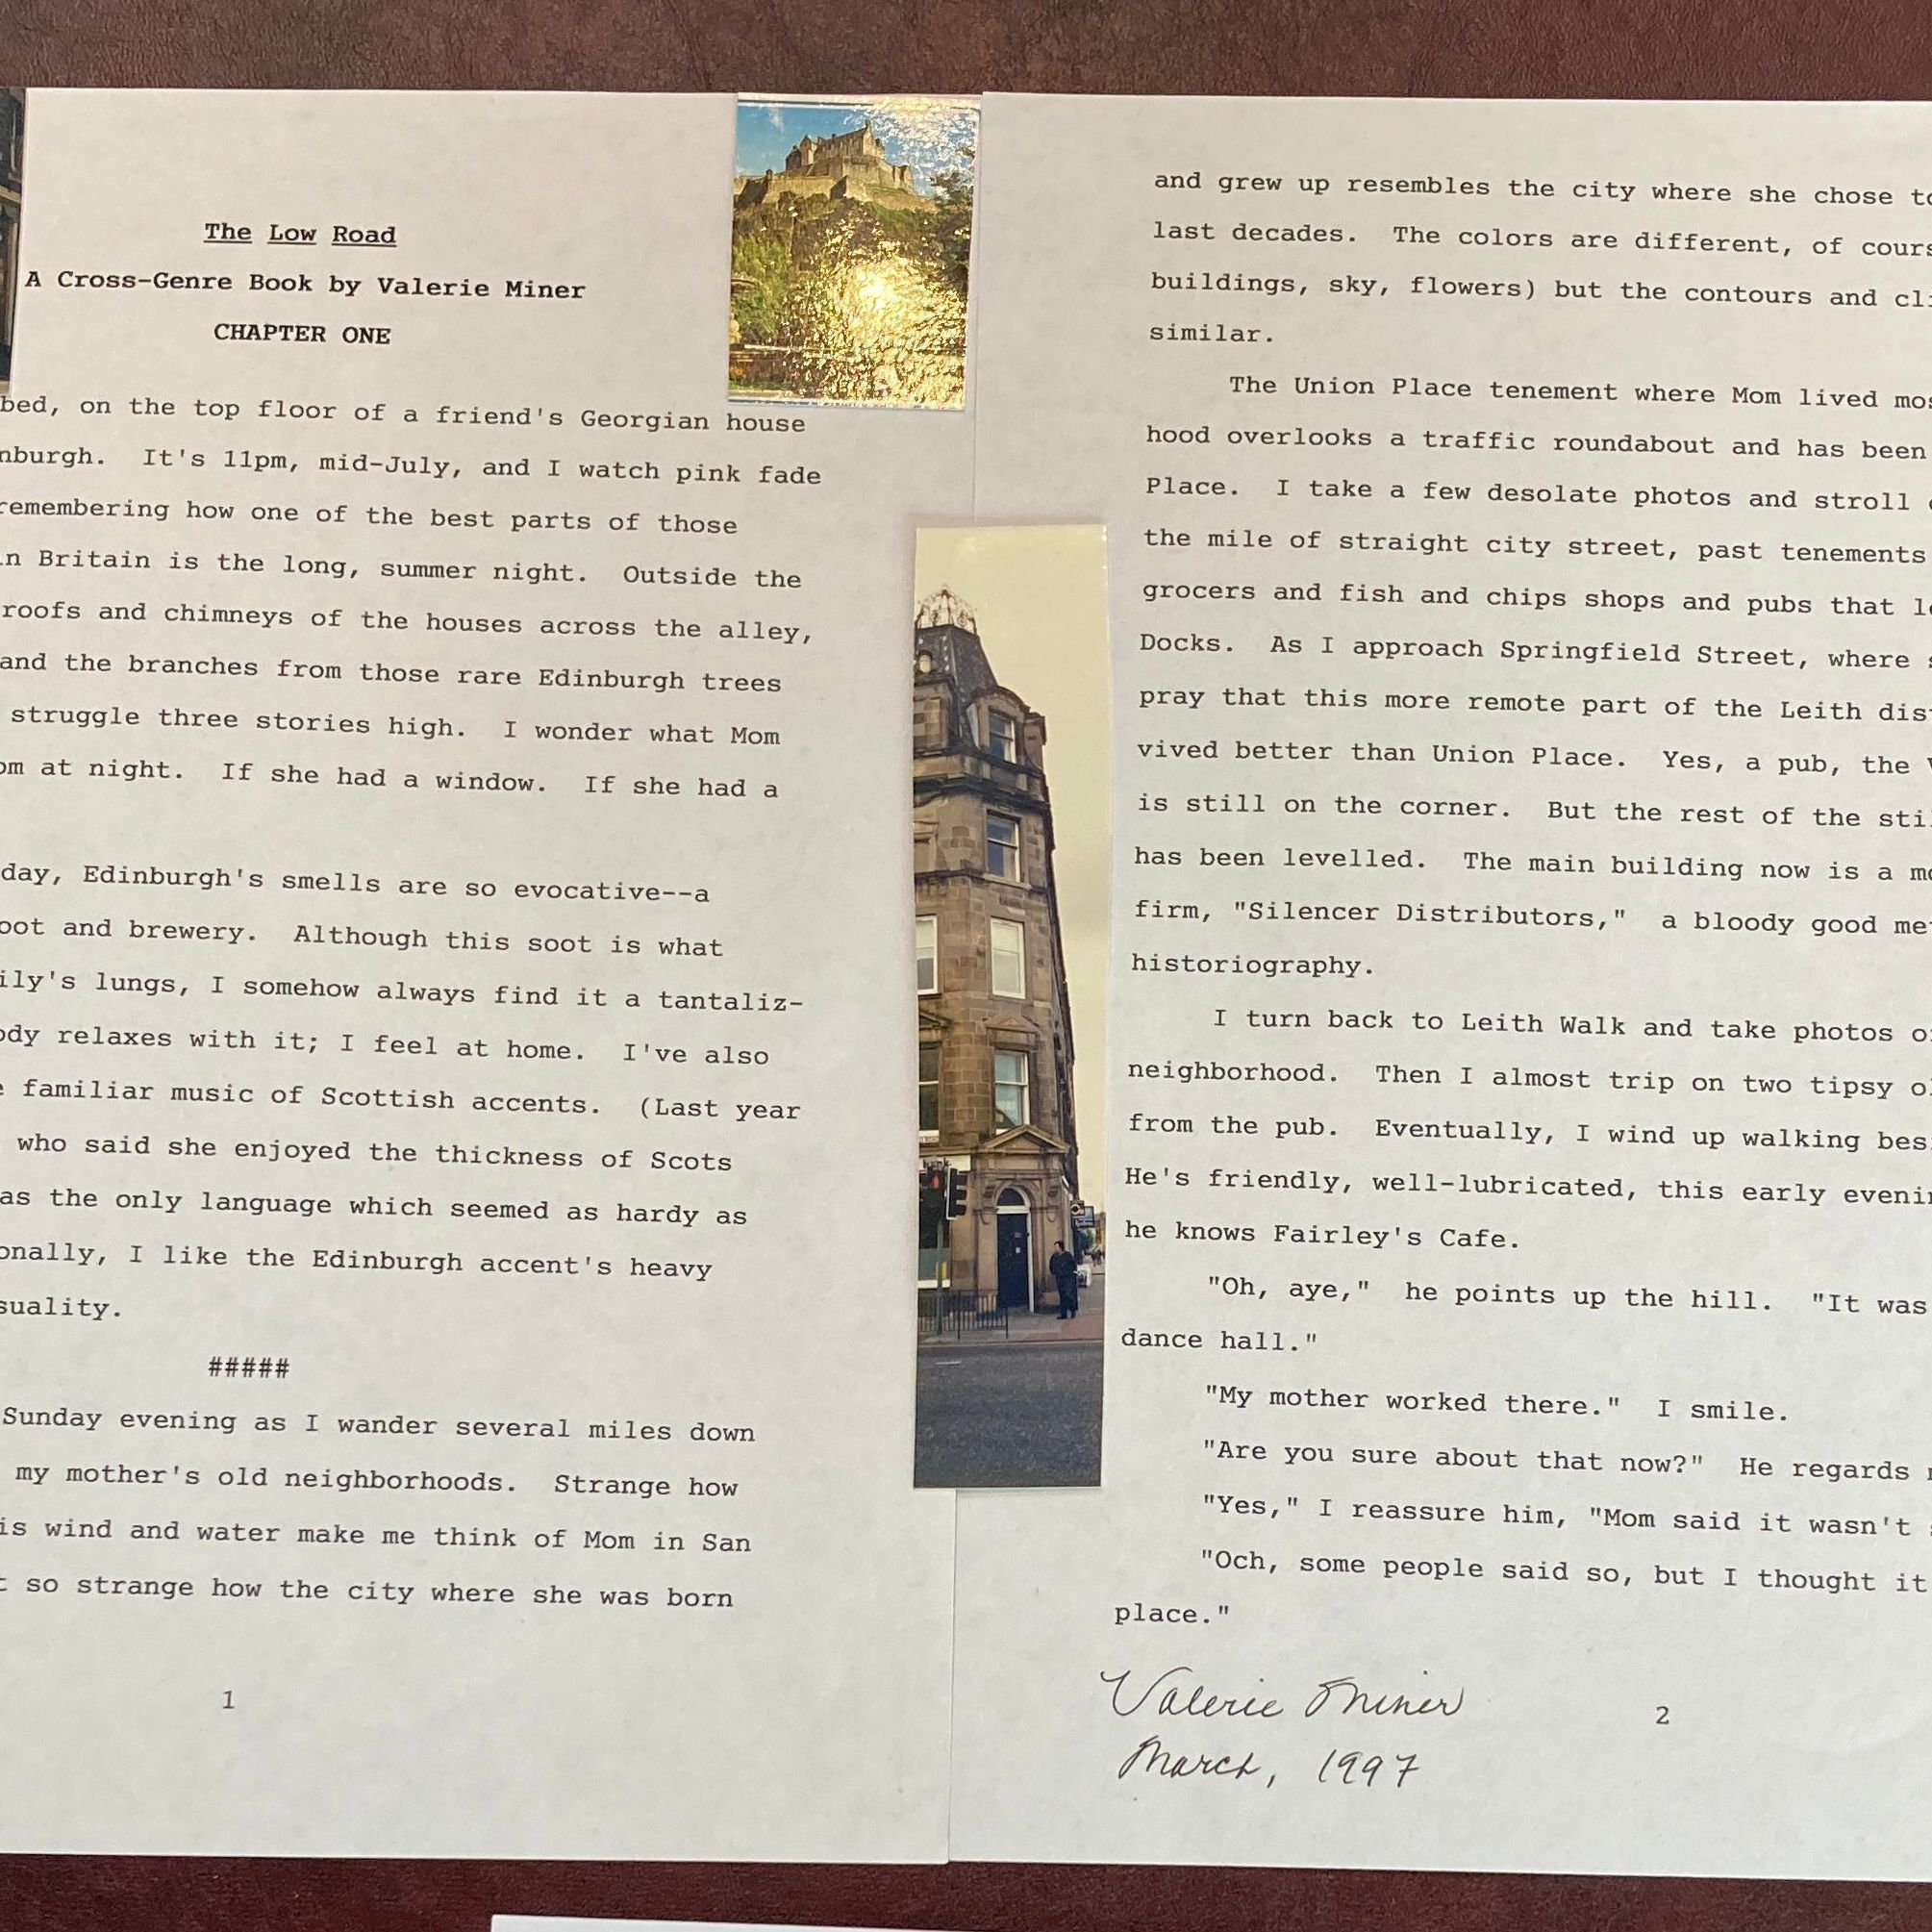 The Low Road
A Cross-Genre Book by Valerie Miner
CHAPTER ONE
bed, on the top floor of a friend's Georgian house
nburgh. It's 11pm, mid-July, and I watch pink fade
remembering how one of the best parts of those
in Britain is the long, summer night. Outside the
roofs and chimneys of the houses across the alley,
and the branches from those rare Edinburgh trees
struggle three stories high. I wonder what Mom
om at night. If she had a window. If she had a
day, Edinburgh's smells are so evocative--a
oot and brewery. Although this soot is what
ily's lungs, I somehow always find it a tantaliz-
ody relaxes with it; I feel at home. I've also
familiar music of Scottish accents. (Last year
who said she enjoyed the thickness of Scots
as the only language which seemed as hardy as
onally, I like the Edinburgh accent's heavy
suality.
#####
Sunday evening as I wander several miles down
my mother's old neighborhoods. Strange how
is wind and water make me think of Mom in San
so strange how the city where she was born
1
and grew up resembles the city where she chose to
last decades. The colors are different, of cours
buildings, sky, flowers) but the contours and cli
similar.
The Union Place tenement where Mom lived mos
hood overlooks a traffic roundabout and has been
Place. I take a few desolate photos and stroll
the mile of straight city street, past tenements
grocers and fish and chips shops and pubs that le
Docks. As I approach Springfield Street, where s
pray that this more remote part of the Leith dis
vived better than Union Place. Yes, a pub, the
is still on the corner. But the rest of the sti
has been levelled. The main building now is a mo
firm, "Silencer Distributors," a bloody good me
historiography.
I turn back to Leith Walk and take photos o
neighborhood. Then I almost trip on two tipsy ol
from the pub. Eventually, I wind up walking bes
He's friendly, well-lubricated, this early eveni
he knows Fairley's Cafe.
"Oh, aye," he points up the hill. "It was
dance hall."
"My mother worked there." I smile.
"Are you sure about that now?" He regards
"Yes," I reassure him, "Mom said it wasn't
"Och, some people said so, but I thought it
place."
Valerie Miner
March, 1997
2